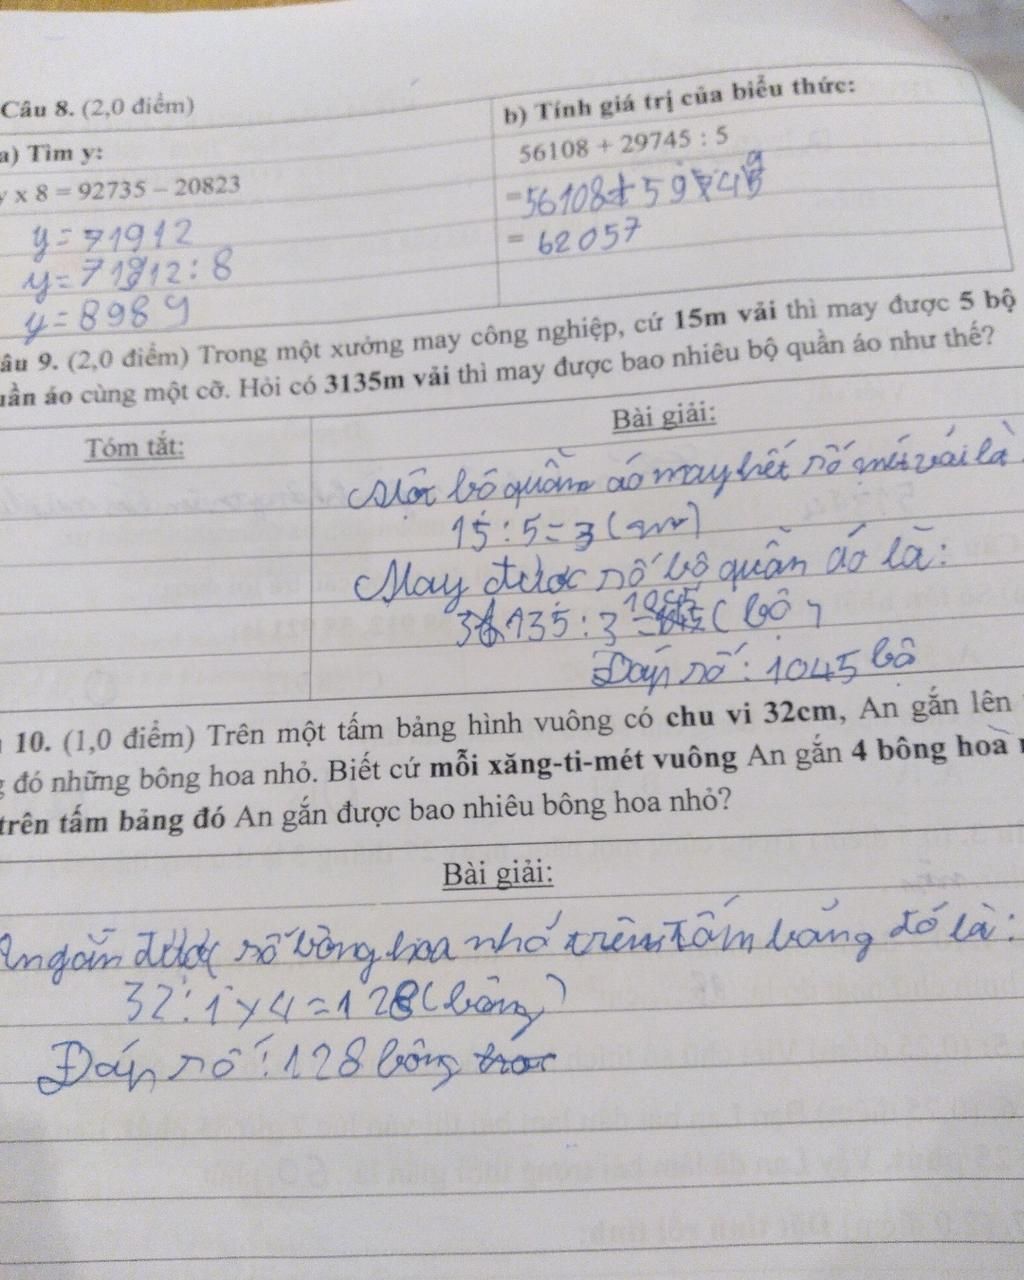 Câu 8. (2,0 điểm)
a) Tìm y:
y x 8 = 92735 – 20823
y = 71912
y = 71912 : 8
y = 8989
b) Tính giá trị của biểu thức:
56108 + 29745 : 5
= 56108 + 5949
= 62057
âu 9. (2,0 điểm) Trong một xưởng may công nghiệp, cứ 15m vải thì may được 5 bộ
uần áo cùng một cỡ. Hỏi có 3135m vải thì may được bao nhiêu bộ quần áo như thế?
Tóm tắt:
Bài giải:
Một bộ quần áo may hết số mét vải là
15 : 5 = 3 (m)
May được số bộ quần áo là:
3135 : 3 = 1045 (bộ)
Đáp số: 1045 bộ
10. (1,0 điểm) Trên một tấm bảng hình vuông có chu vi 32cm, An gắn lên
g đó những bông hoa nhỏ. Biết cứ mỗi xăng-ti-mét vuông An gắn 4 bông hoa
trên tấm bảng đó An gắn được bao nhiêu bông hoa nhỏ?
Bài giải:
An gắn được số bông hoa nhỏ trên tấm bảng đó là:
32 : 1 x 4 = 128 (bông)
Đáp số: 128 bông